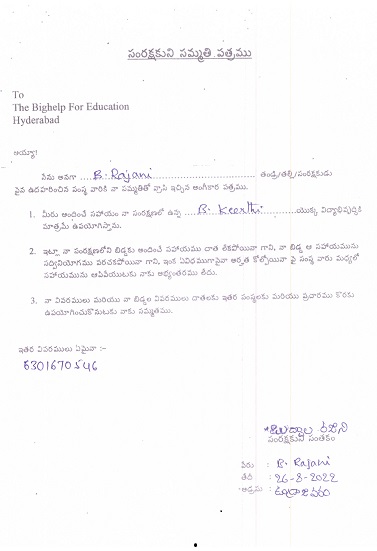 సంరక్షకుని సమ్మతి పత్రము
To
The Bighelp For Education
Hyderabad
అయ్యా!
నేను అనగా ....B. Rajani.................... తండ్రి/తల్లి/సంరక్షకుడు
పైన ఉదహరించిన సంస్థ వారికి నా సమ్మతితో వ్రాసి ఇచ్చిన అంగీకార పత్రము.
1. మీరు అందించే సహాయం నా సంరక్షణలో ఉన్న ....B. Keerthi............యొక్క విద్యాభివృద్ధికి
మాత్రమే ఉపయోగిస్తాను.
2. ఇట్లా నా సంరక్షణలోని బిడ్డకు అందించే సహాయము దాత లేకపోయినా గాని, నా బిడ్డ ఆ సహాయమును
సద్వినియోగము పరచకపోయినా గాని, ఇంక ఏవిధముగానైనా అర్హత కోల్పోయినా పై సంస్థ వారు మధ్యలో
సహాయమును ఆపివేయుటకు నాకు అభ్యంతరము లేదు.
3. నా వివరములు మరియు నా బిడ్డల వివరములు దాతలకు ఇతర సంస్థలకు మరియు ప్రచారము కొరకు
ఉపయోగించుకొనుటకు నాకు సమ్మతము.
ఇతర వివరములు ఏమైనా :-
6301670546
రజని
సంరక్షకుని సంతకం
పేరు : B. Rajani
తేదీ : 26-8-2022
అడ్రసు :